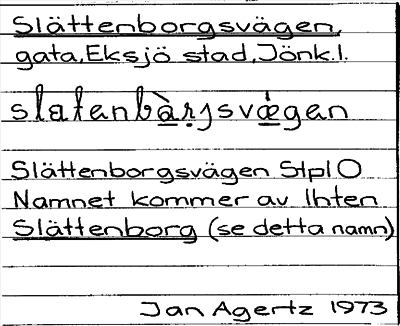 Slättenborgsvägen,
gata, Eksjö stad, Jönk.l.
slatanbàrjsvǽgan
Slättenborgsvägen Stpl O
Namnet kommer av lhten
Slättenborg (se detta namn)
Jan Agertz 1973